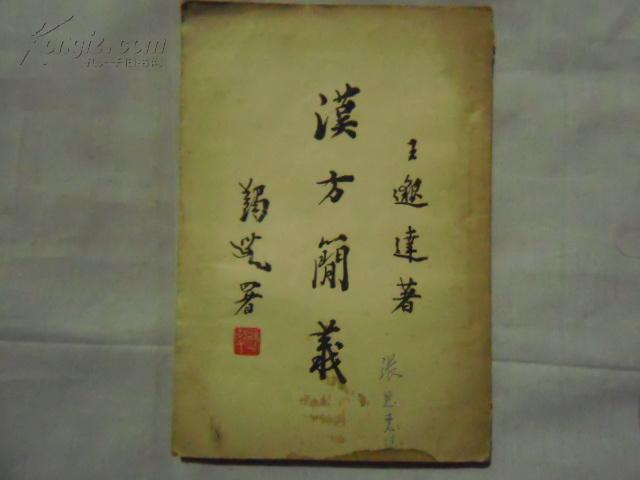 王邈達著
漢方簡義
署
張
Kongfz.com
孔夫子旧书网